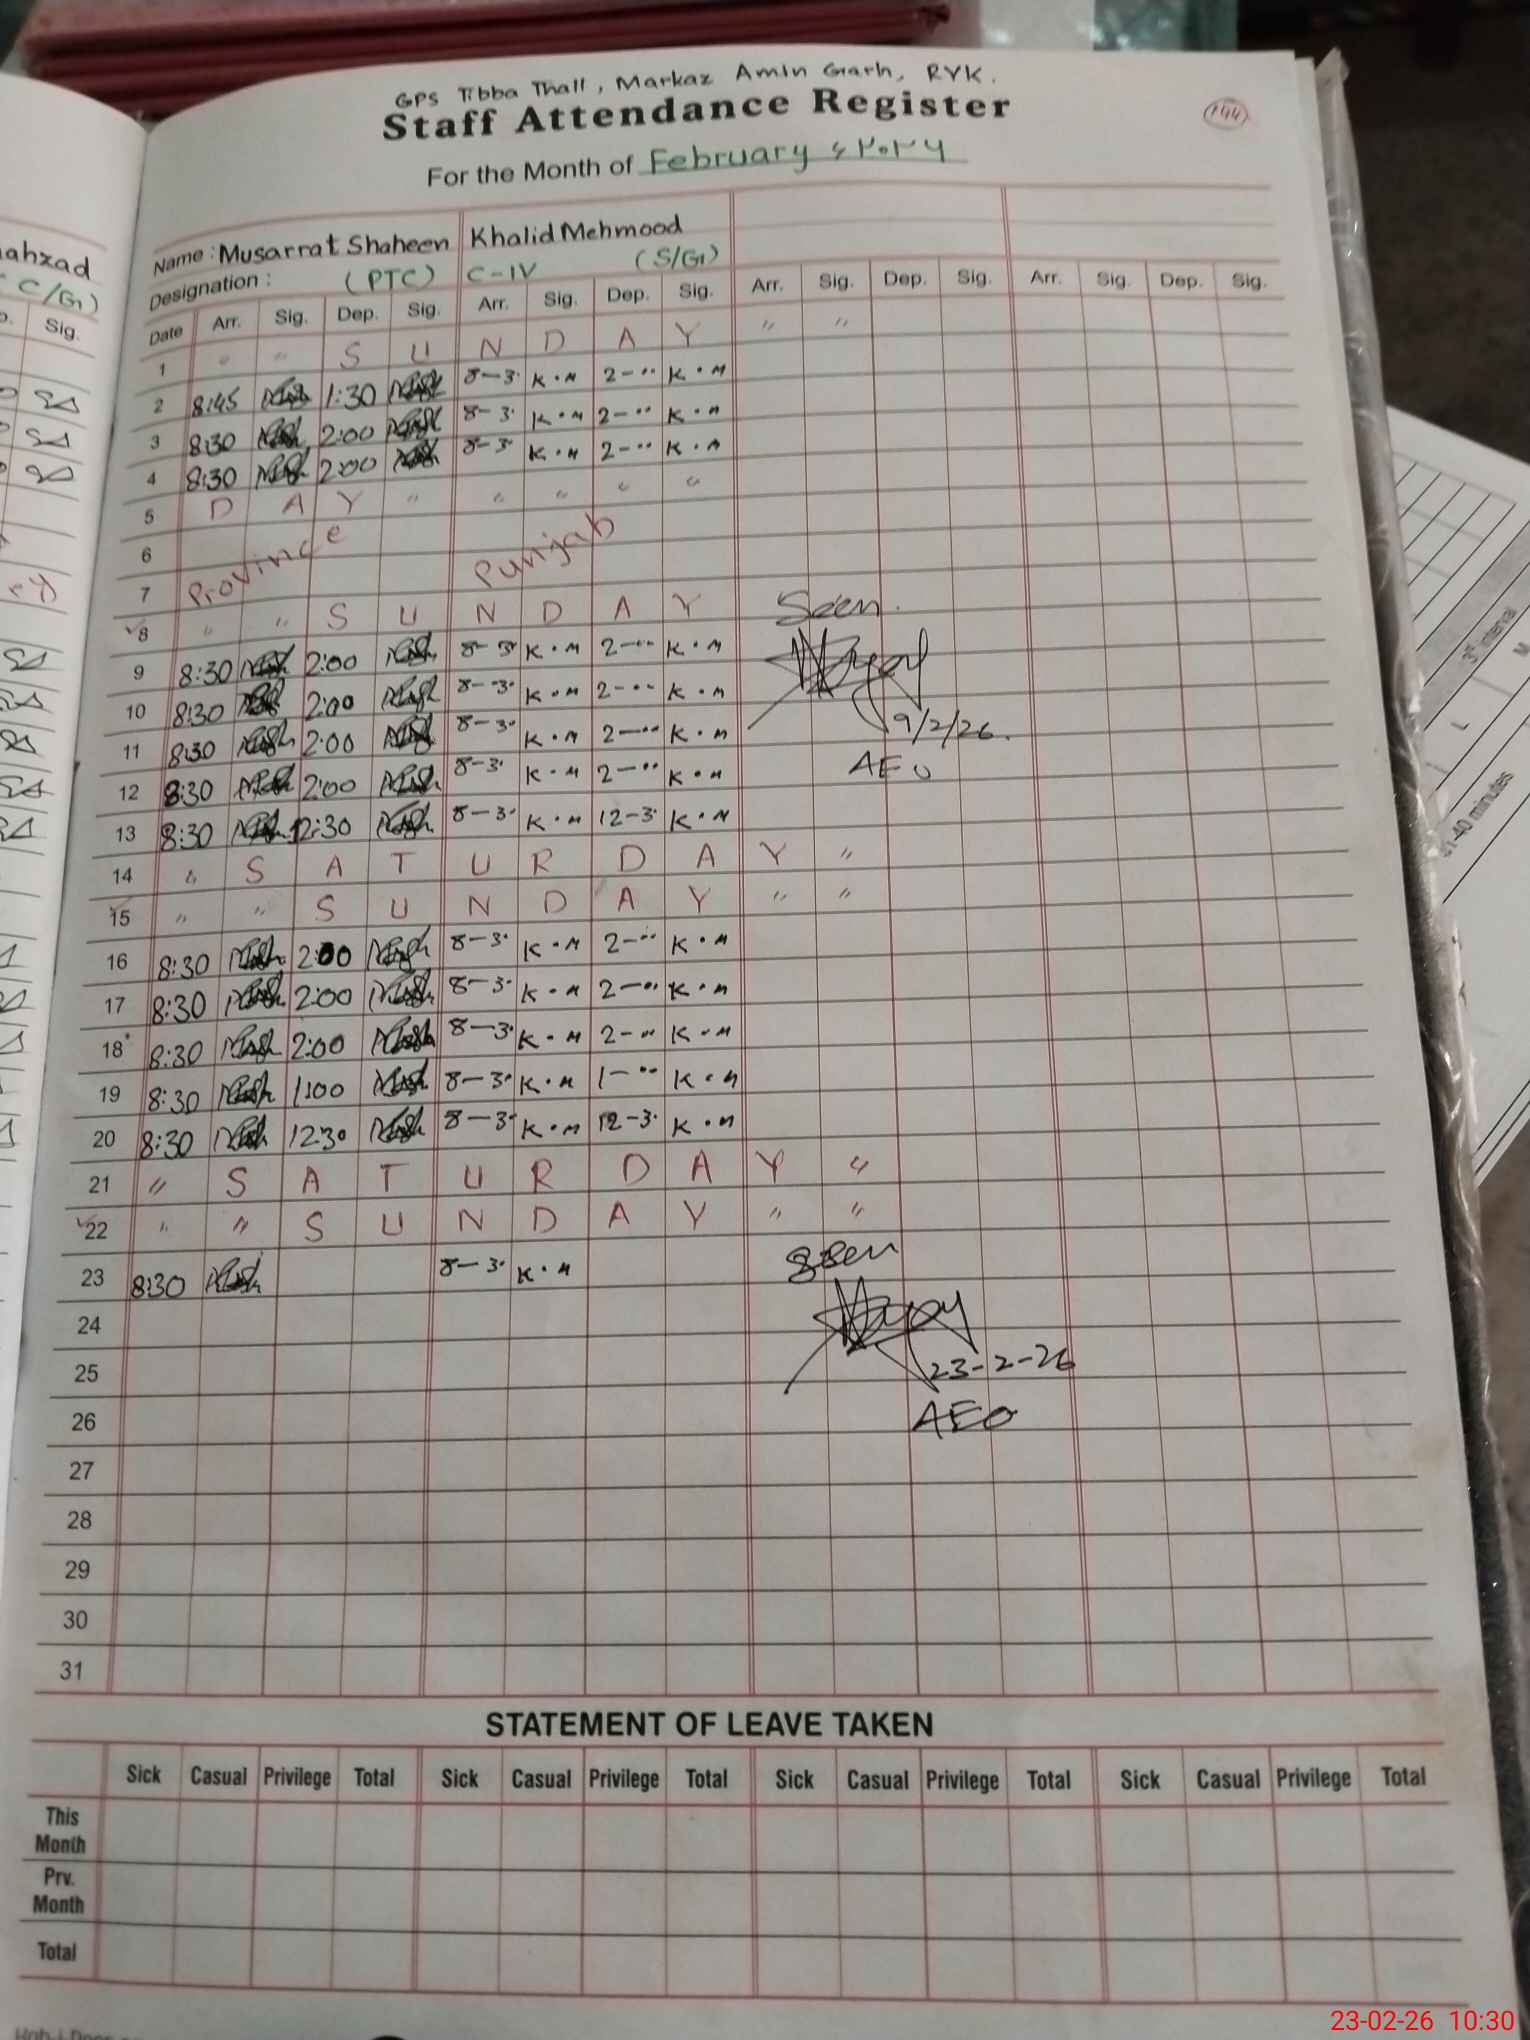 GPS Tibba Thall, Markaz Amin Garh, RYK.
Staff Attendance Register
144
For the Month of February ۶۲۰۲۶
ahzad
C/G1)
Sig.
Name : Musarrat Shaheen Khalid Mehmood
Designation : (PTC) C-IV (S/G1)
Date Arr. Sig. Dep. Sig. Arr. Sig. Dep. Sig. Arr. Sig. Dep. Sig. Arr. Sig. Dep. Sig.
1 " " S U N D A Y " "
2 8:45 1:30 8-3· K·M 2-·· K·M
3 8:30 2:00 8-3· K·M 2-·· K·M
4 8:30 2:00 8-3· K·M 2-·· K·M
5 D A Y " " " " "
6
7 Province Punjab
8 " " S U N D A Y Seen.
9 8:30 2:00 8-3· K·M 2-·· K·M
10 8:30 2:00 8-3· K·M 2-·· K·M
9/2/26.
11 8:30 2:00 8-3· K·M 2-·· K·M
AEO
12 8:30 2:00 8-3· K·M 2-·· K·M
13 8:30 12:30 8-3· K·M 12-3· K·M
14 " S A T U R D A Y "
15 " " S U N D A Y " "
16 8:30 2:00 8-3· K·M 2-·· K·M
17 8:30 2:00 8-3· K·M 2-·· K·M
18 8:30 2:00 8-3· K·M 2-·· K·M
19 8:30 1:00 8-3· K·M 1-·· K·M
20 8:30 12:30 8-3· K·M 12-3· K·M
21 " S A T U R D A Y "
22 " " S U N D A Y " "
23 8:30 8-3· K·M Seen
24
25 23-2-26
26 AEO
27
28
29
30
31
STATEMENT OF LEAVE TAKEN
Sick Casual Privilege Total Sick Casual Privilege Total Sick Casual Privilege Total Sick Casual Privilege Total
This Month
Prv. Month
Total
3rd interval
L
40 minutes
23-02-26 10:30